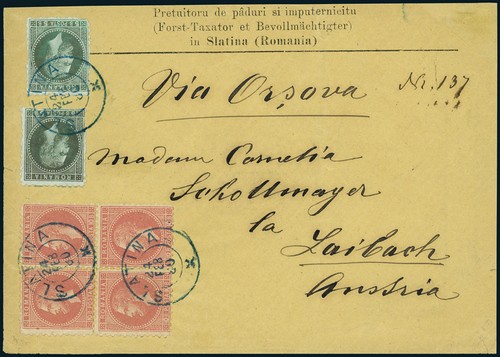 Pretuitora de păduri si imputernicitu
(Forst-Taxator et Bevollmächtigter)
in Slatina (Romania)
Via Orşova
Nr. 137
Madame Cornelia
Schollmayer
la
Laibach
Austria
ROMANIA
ROMANIA
ROMANIA
ROMANIA
SLATINA
SLATINA